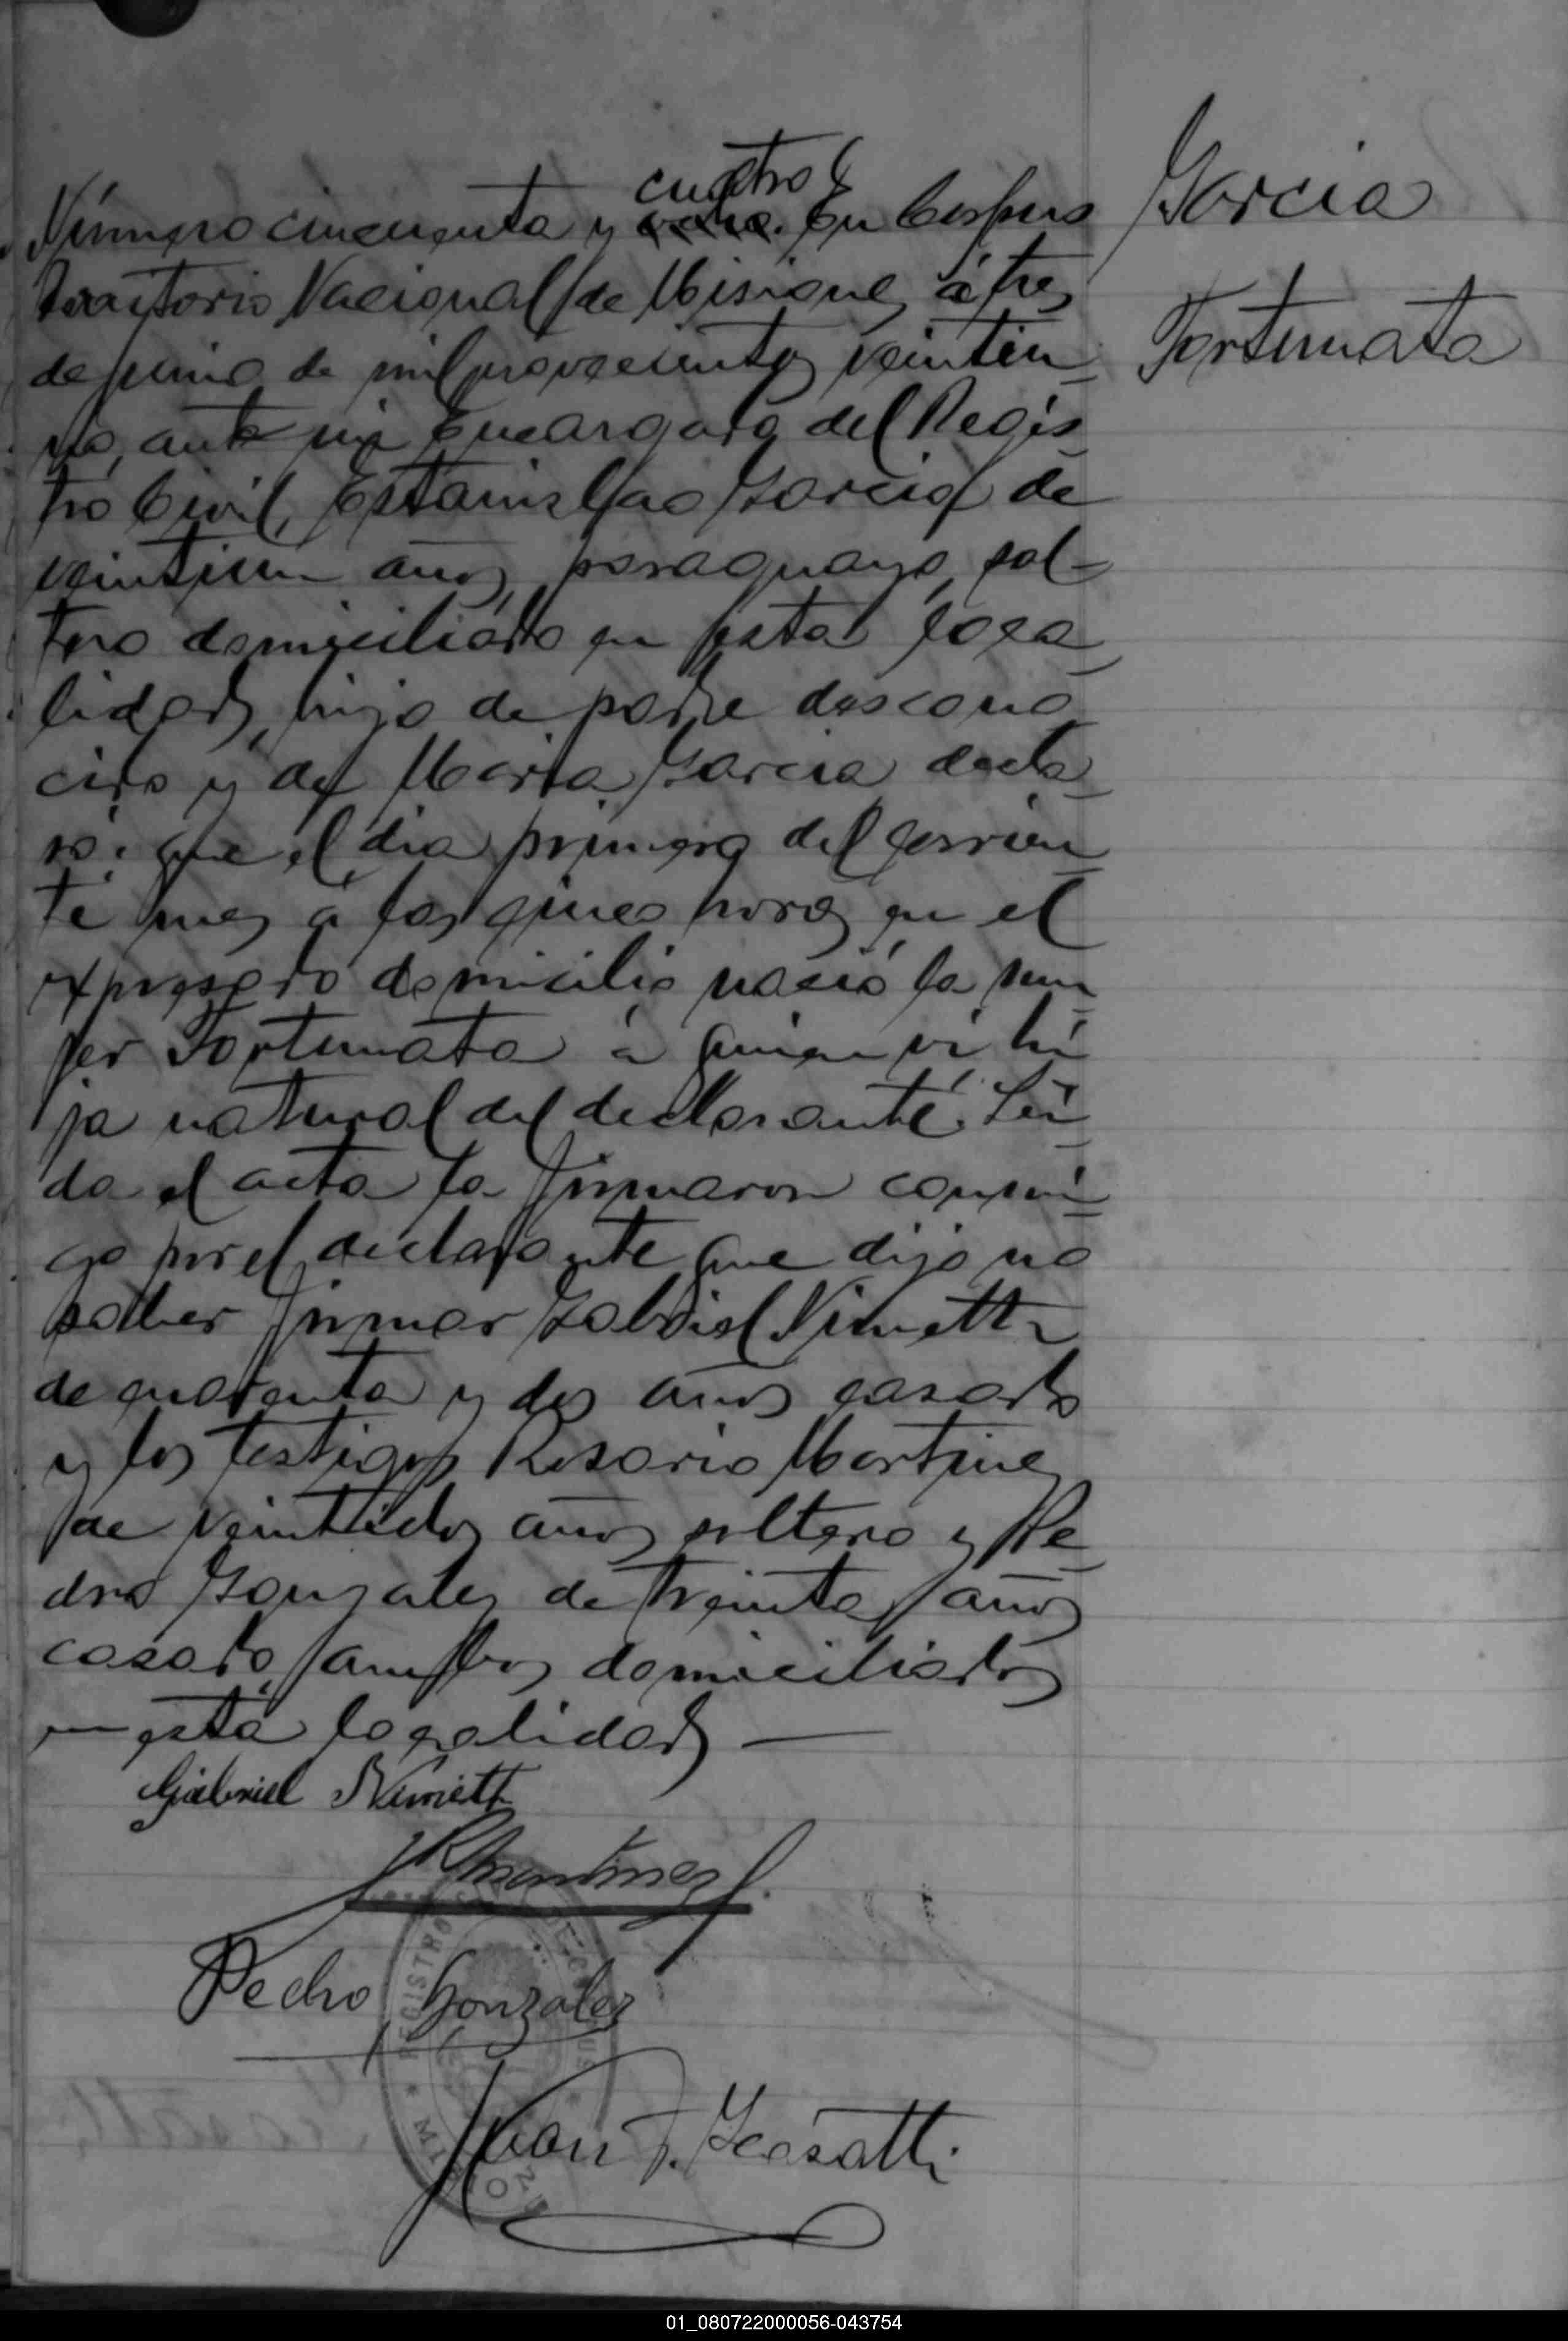 Garcia
Fortunata
cuatro
Número cincuenta y ocho. En Corpus
territorio Nacional de Misiones á tres
de junio de mil novecientos veintiu-
no, ante mi Encargado del Regis-
tro Civil, Estanislao Garcia de
veintiun años, paraguayo, sol-
tero domiciliado en esta loca-
lidad, hijo de padre descono-
cido y de Maria Garcia decla-
ró: que el dia primero del corrien-
te mes á las cinco horas en el
expresado domicilio nació la mu-
jer Fortunata á quien vi hi-
ja natural del declarante. Lei-
da el acta la firmaron conmi-
go por el declarante que dijo no
saber firmar Gabriel Nimett
de cuarenta y dos años casado
y los testigos Rosario Martinez
de veintidos años soltero y Pe-
dro Gonzalez de treinta años
casado, ambos domiciliados
en esta localidad —
Gabriel Nimett
R Martinez
Pedro Gonzalez
REGISTRO CORPUS
MISIONES
Juan F.